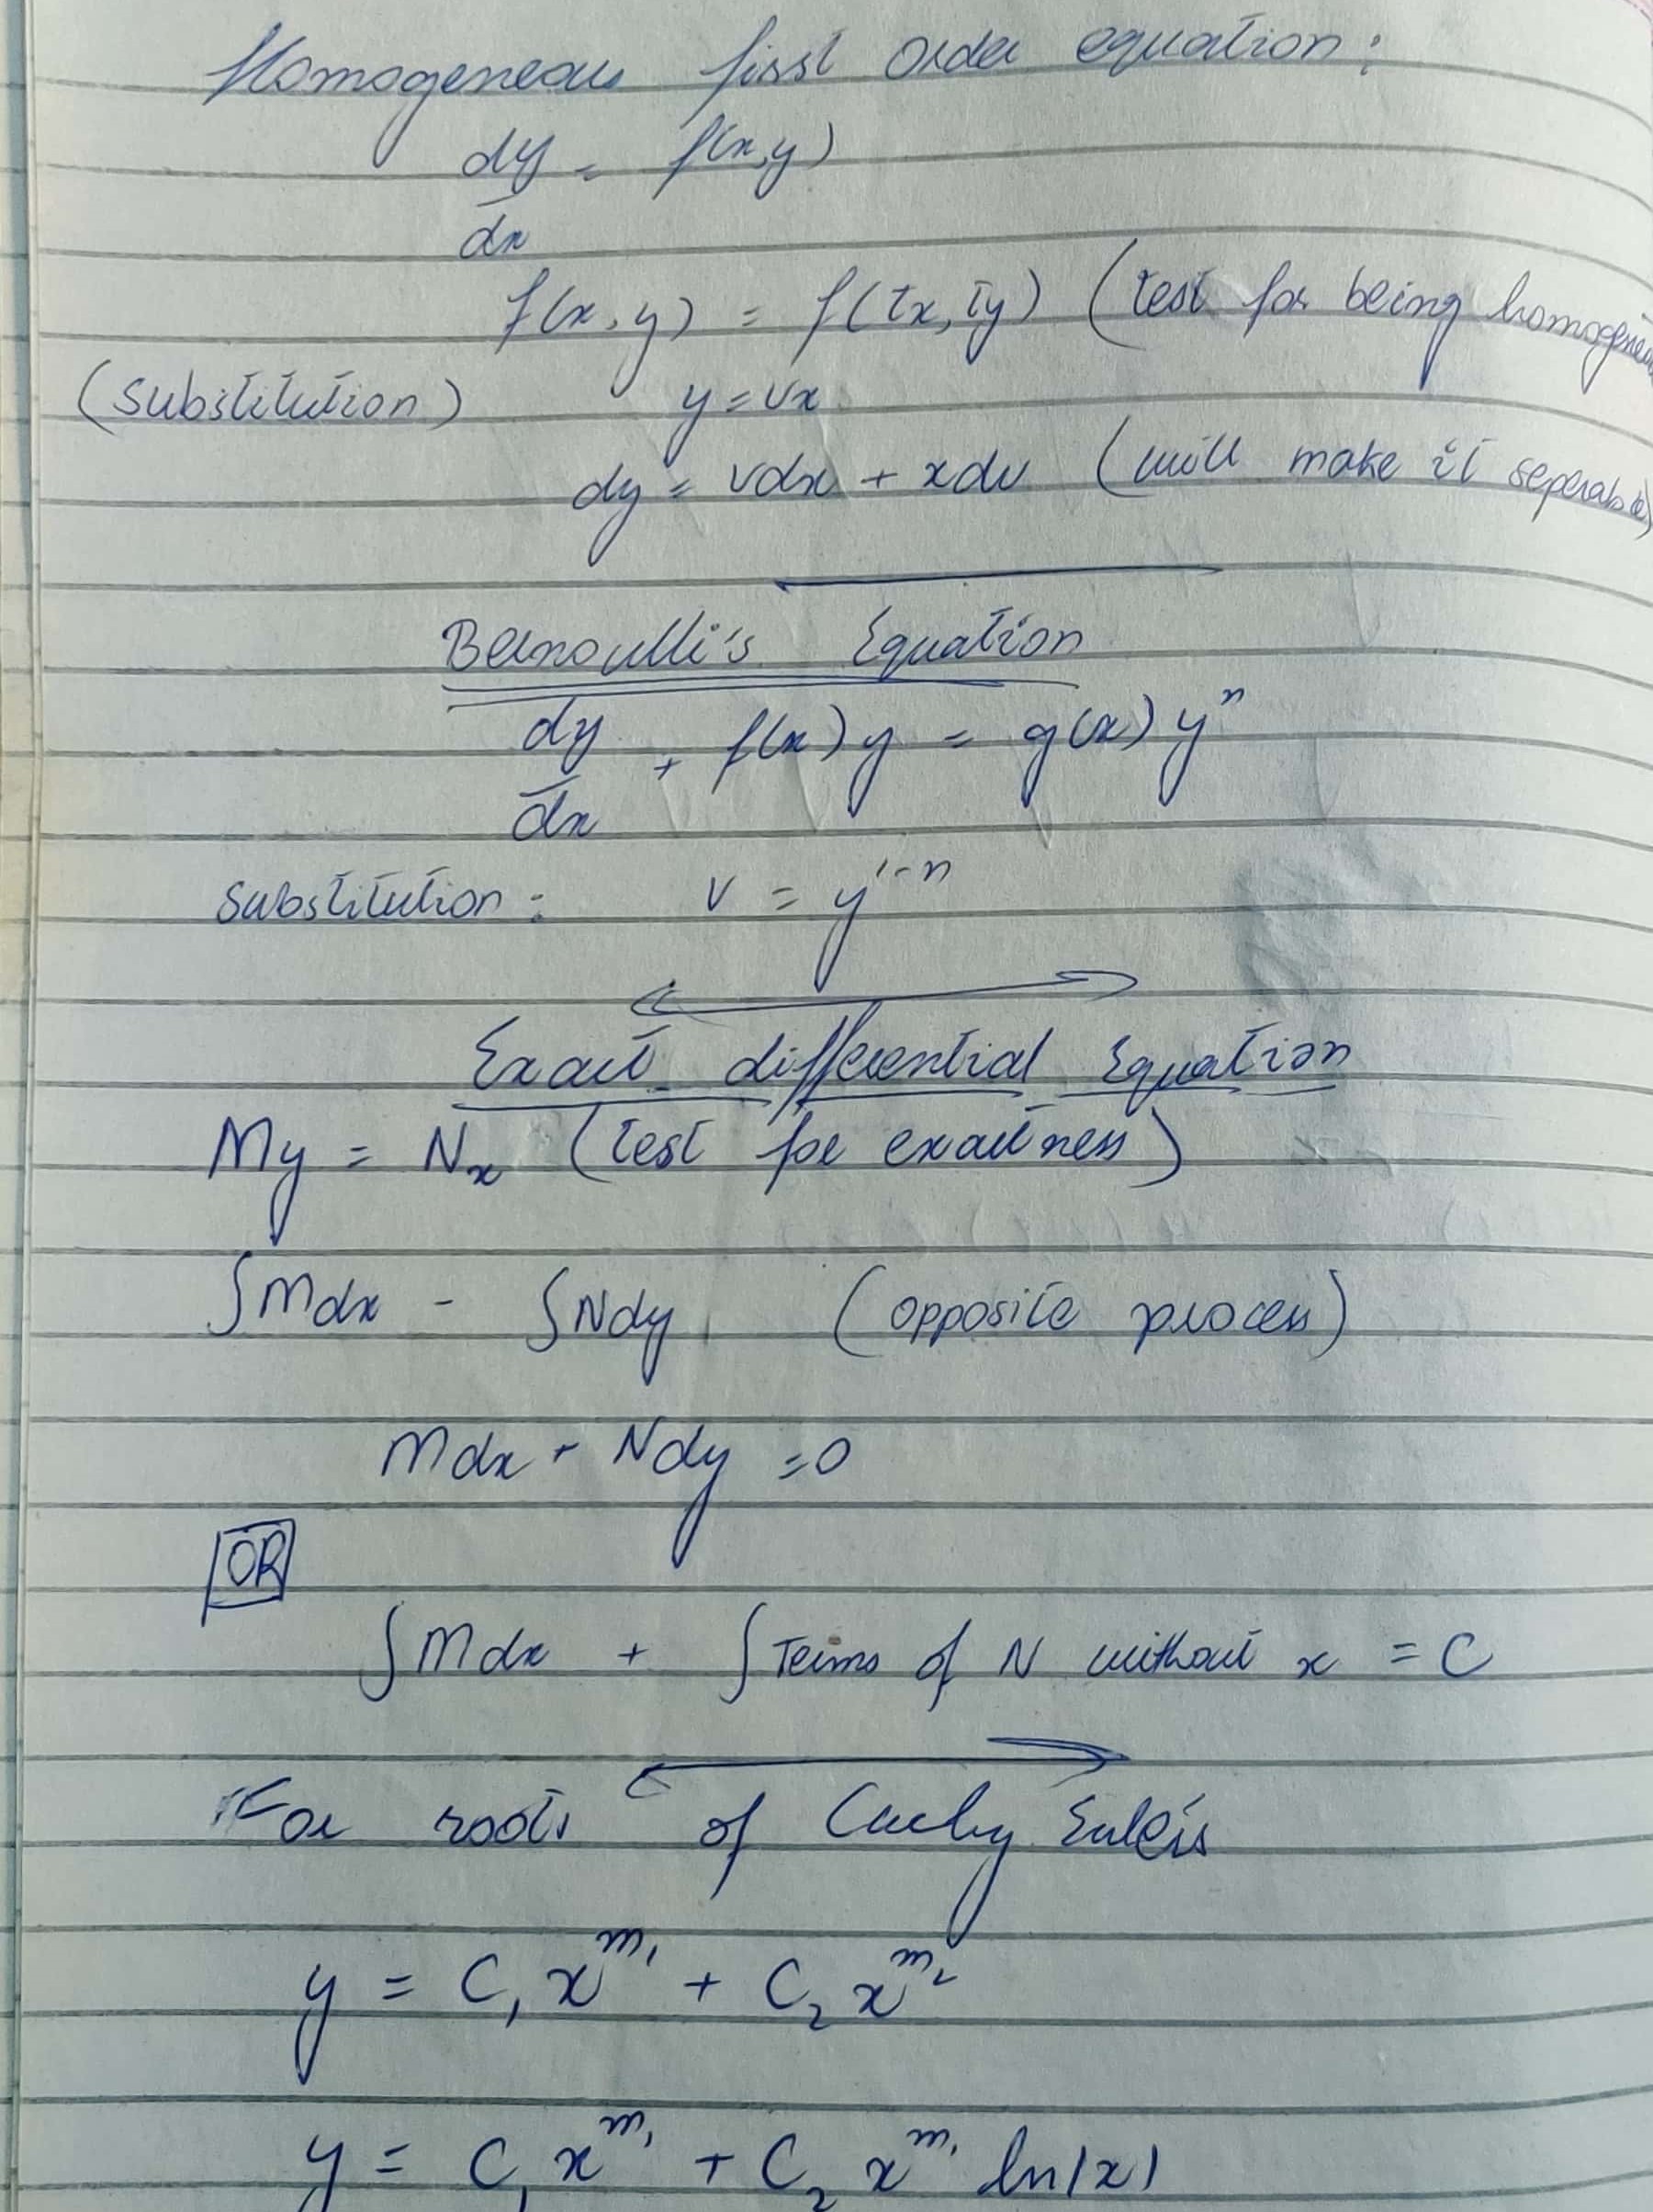 Homogeneous first order equation:
dy/dx = f(x,y)
f(x,y) = f(tx,ty) (test for being homogeneous
(substitution) y=vx
dy = vdx + xdv (will make it seperable)
Bernoulli's Equation
dy/dx + f(x)y = g(x)y^n
Substitution: v = y^1-n
Exact differential Equation
My = Nx (test for exactness)
∫Mdx - ∫Ndy (opposite process)
Mdx + Ndy =0
OR
∫Mdx + ∫Terms of N without x = C
For roots of Cauchy Euler's
y = C₁x^m₁ + C₂x^m₂
y = C₁x^m₁ + C₂x^m₁ ln|x|